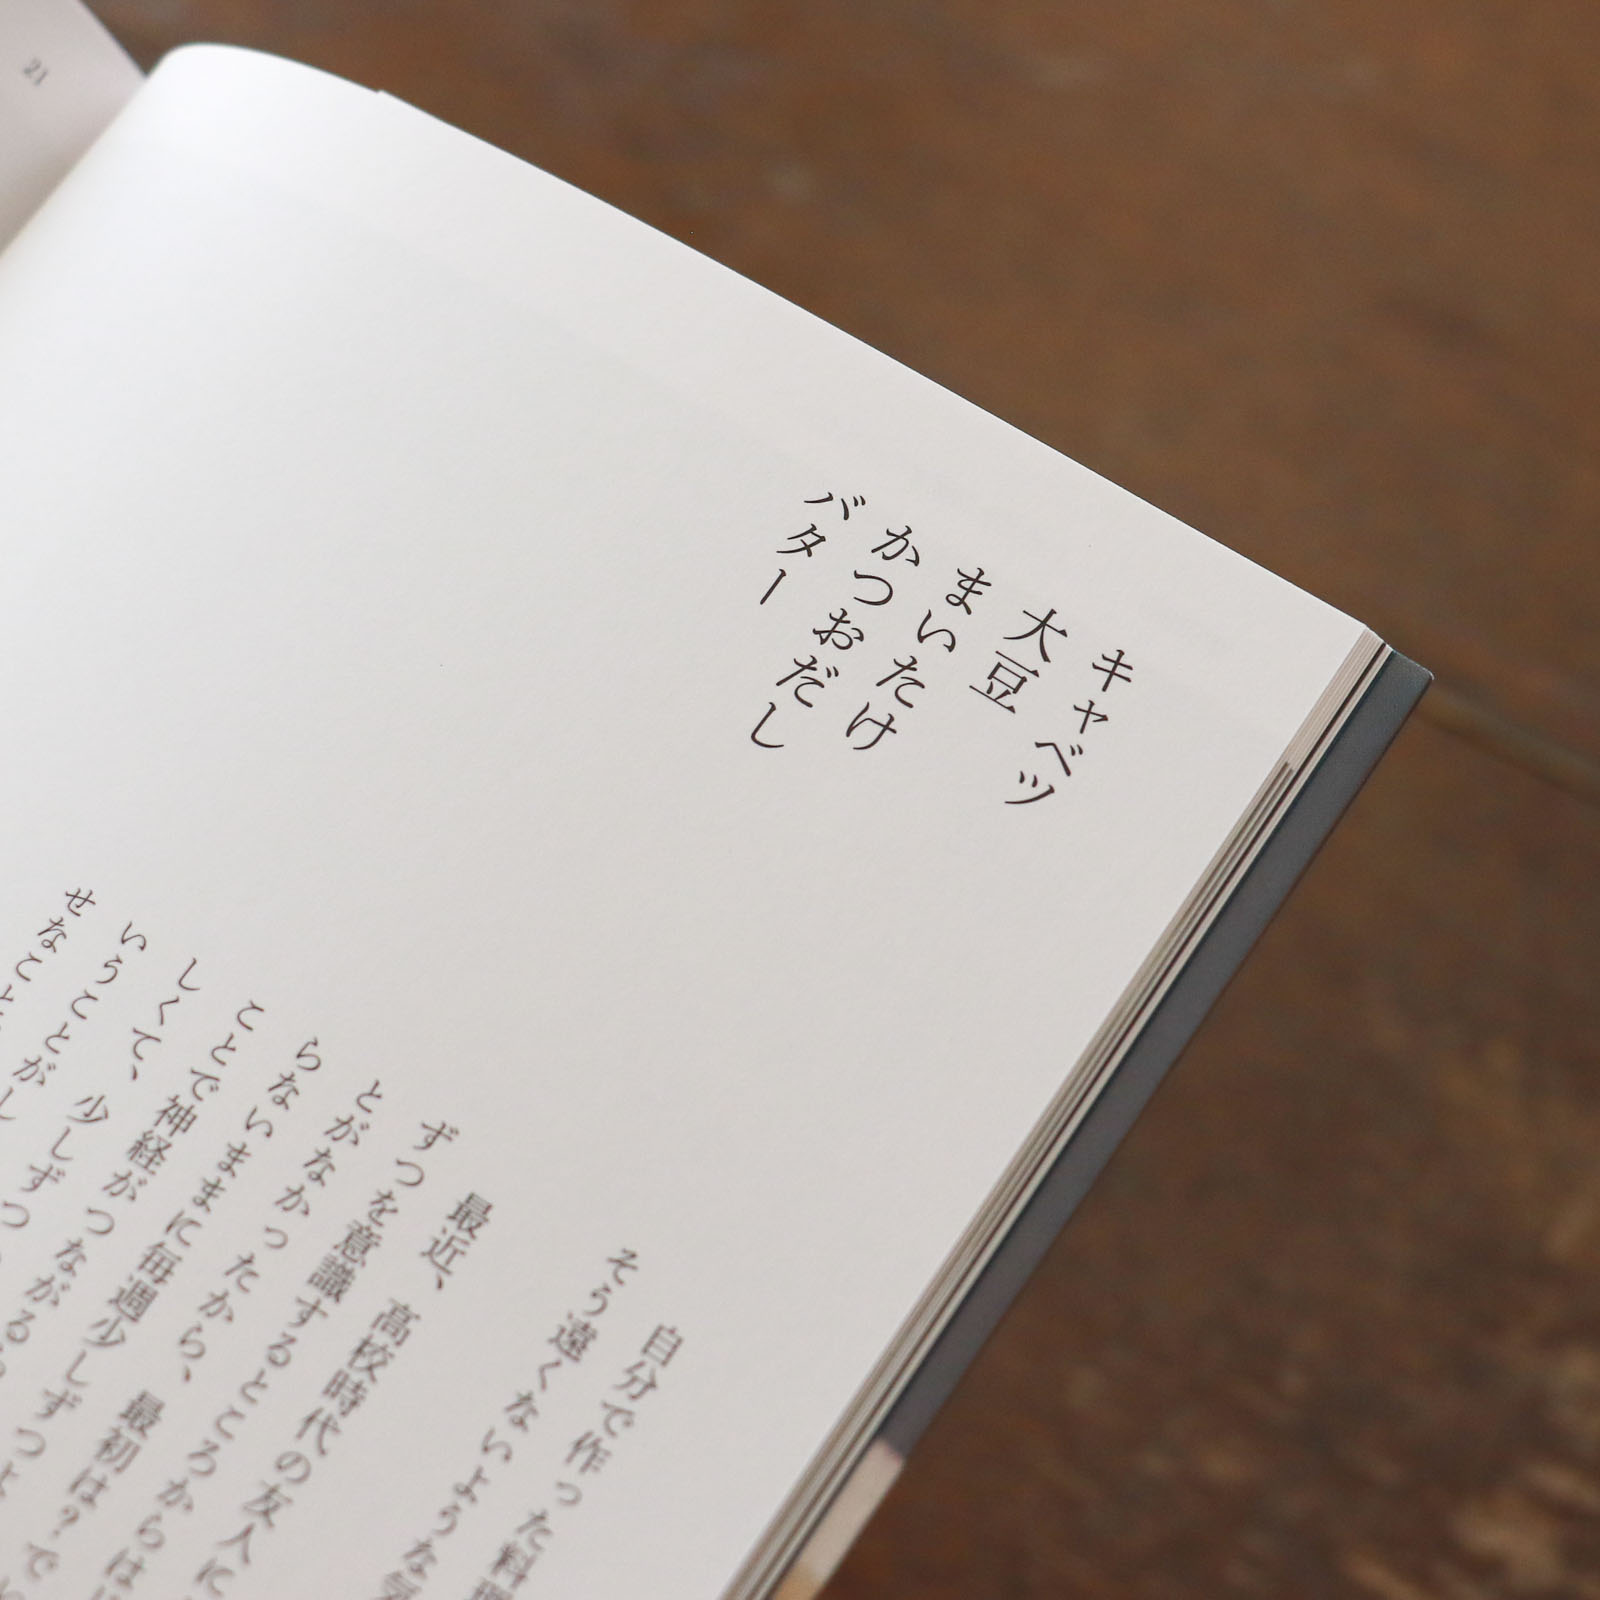 キャベツ
大豆
まいたけ
かつおだし
バター
自分で作った料理
そう遠くないような気
最近、高校時代の友人に
ずつを意識するところからは
とがなかったから、最初は？で
らないままに毎週少しずつ
ことで神経がつながる
しくて、少しずつ
いうことがし
せなこと
21